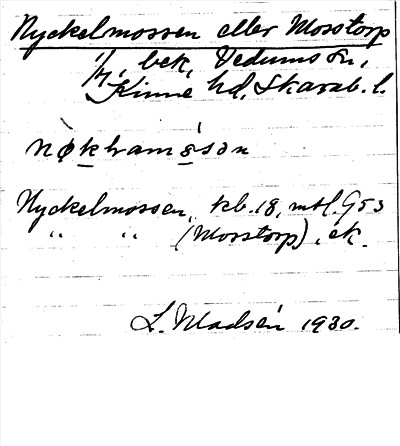 Nyckelmossen eller Mosstorp
1/4, bek, Vedums sn,
Kinne hd, Skarab. l.
nøkhamosən
Nyckelmossen, kb. 18, mtl. G53
" " (Mosstorp), ek.
L. Madsén 1930.